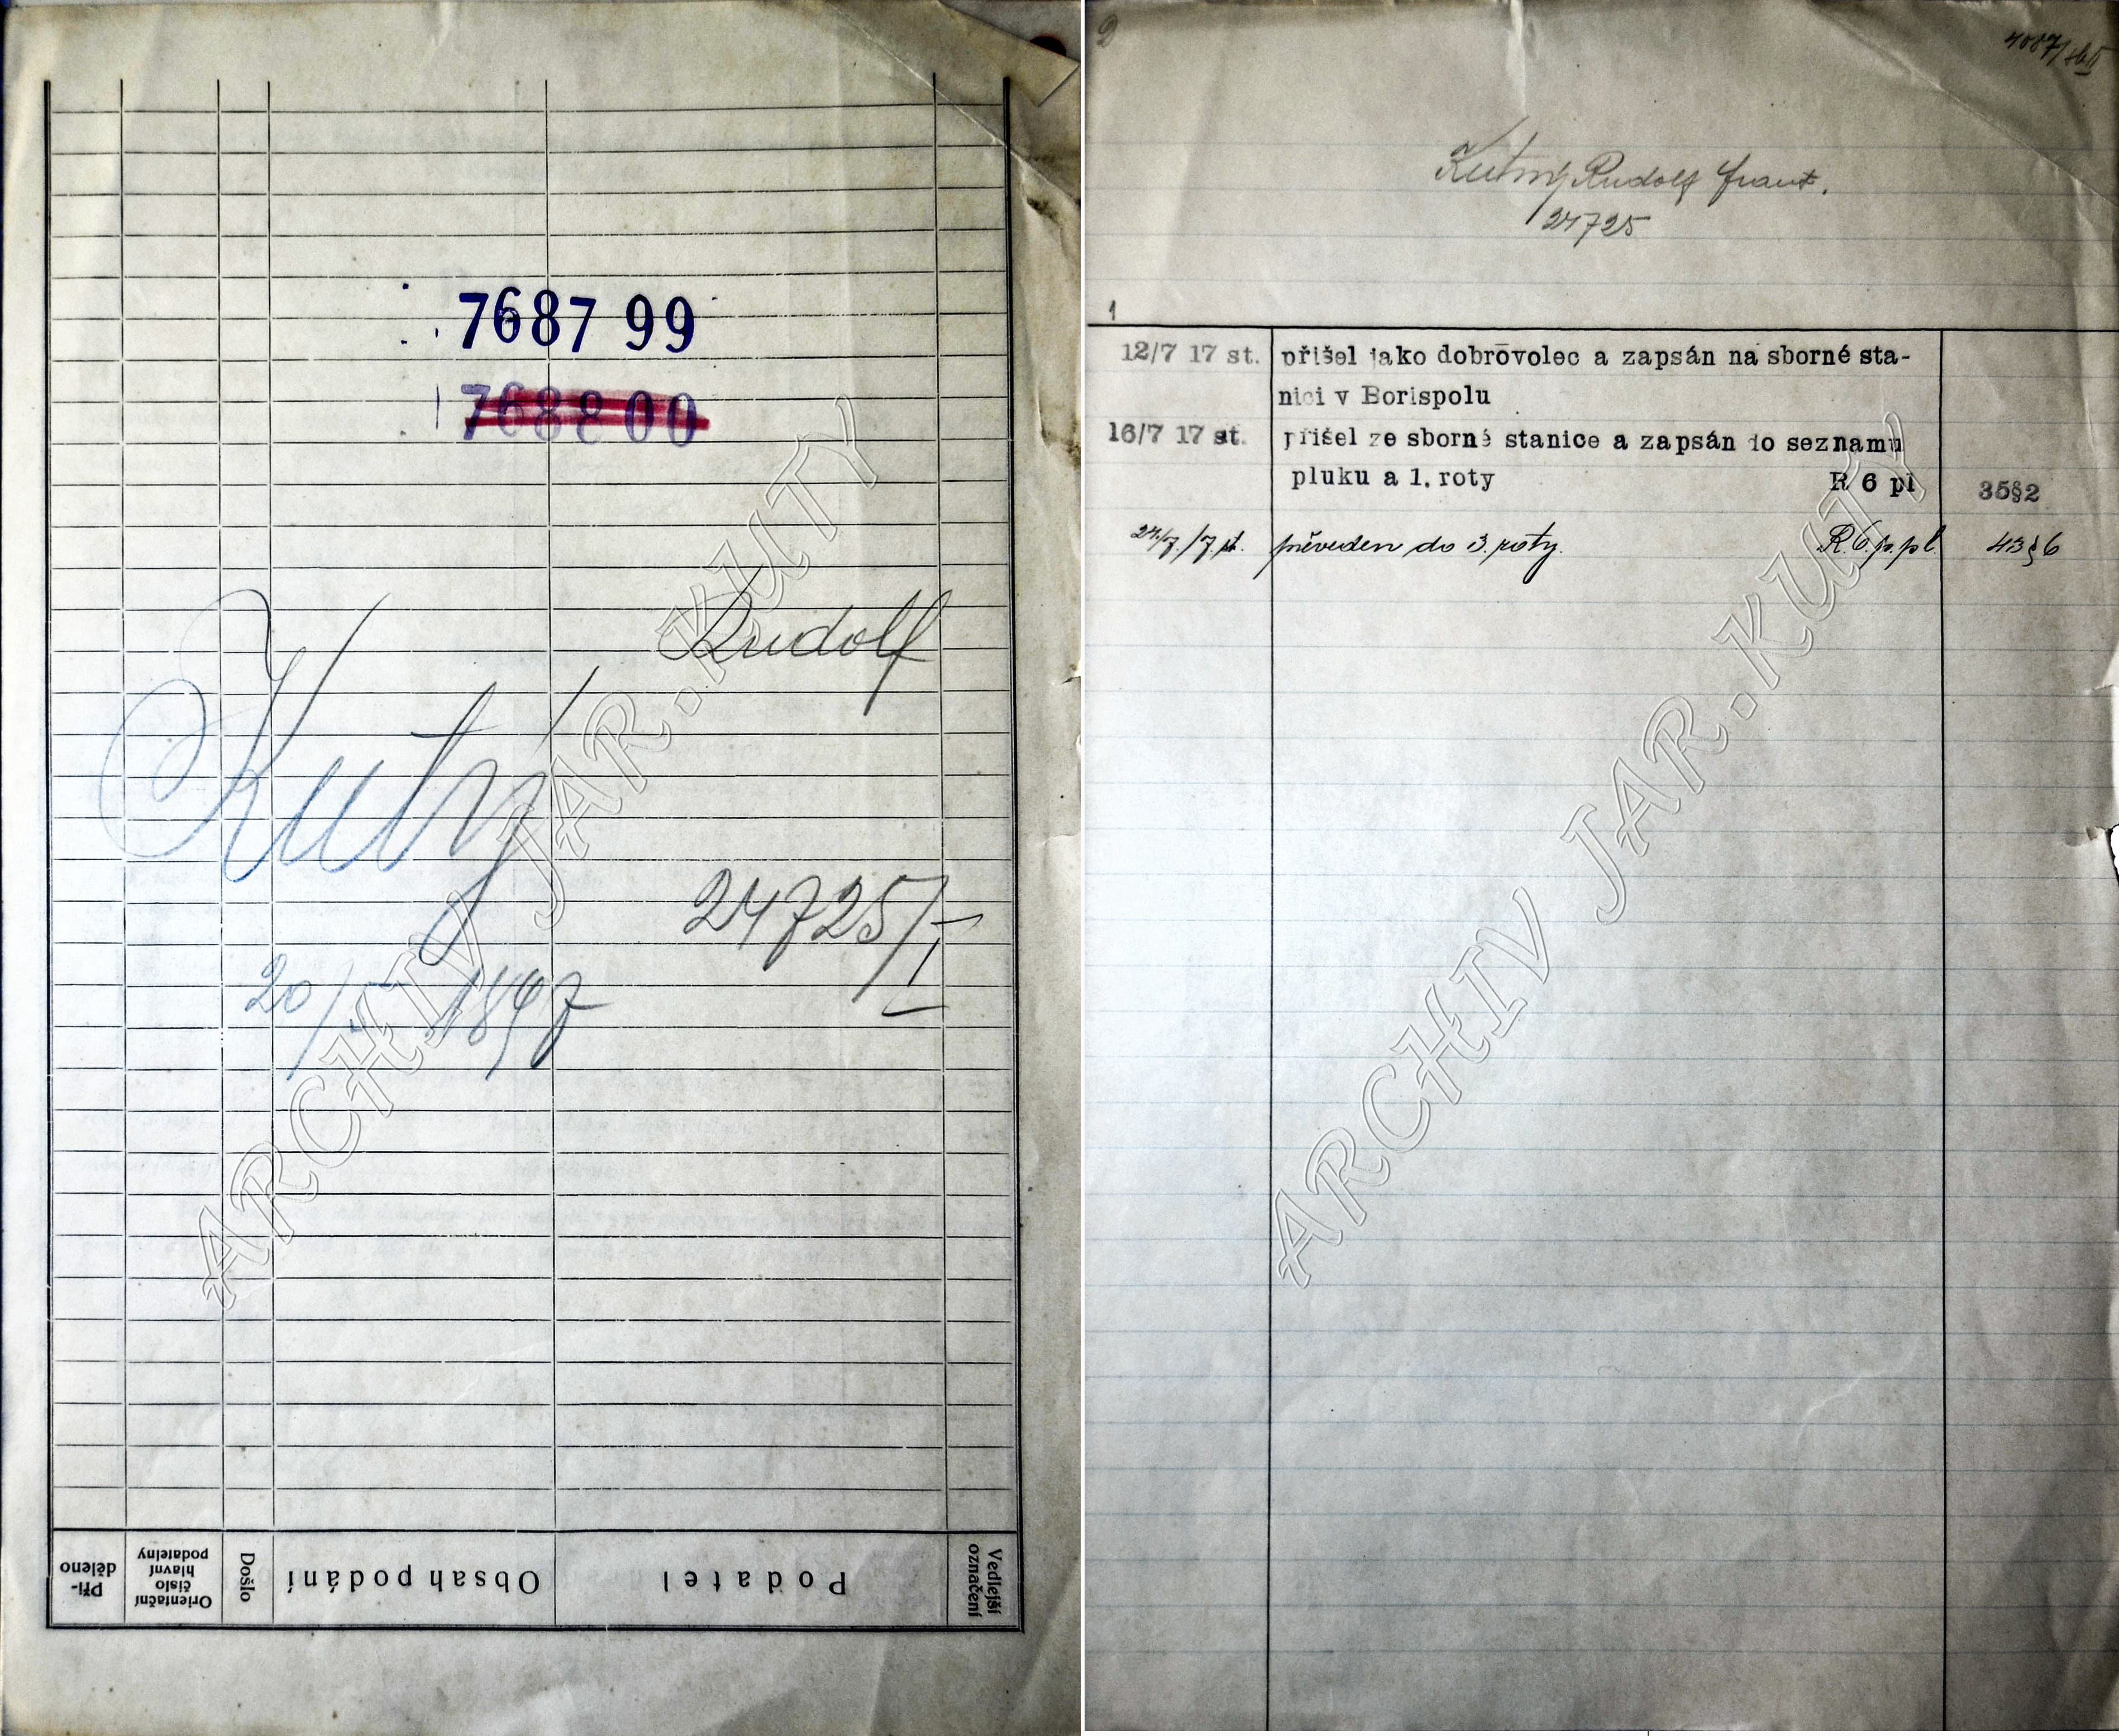 7687 99
768800
Rudolf
Kutý
24725/I
20/ 1897
Při-
děleno
Orientační
číslo
hlavní
podatelny
Došlo
Obsah podání
Podatel
Vedlejší
označení
ARCHIV JAR. KUTY
Kutný Rudolf Frant.
24725
1
12/7 17 st. přišel jako dobrovolec a zapsán na sborné sta-
nici v Borispolu
16/7 17 st. přišel ze sborné stanice a zapsán do seznamu
pluku a 1. roty R 6 pl 35§2
24/7. 17. st. převeden do 3. roty. R. 6. p. pl. 43§6
ARCHIV JAR. KUTY